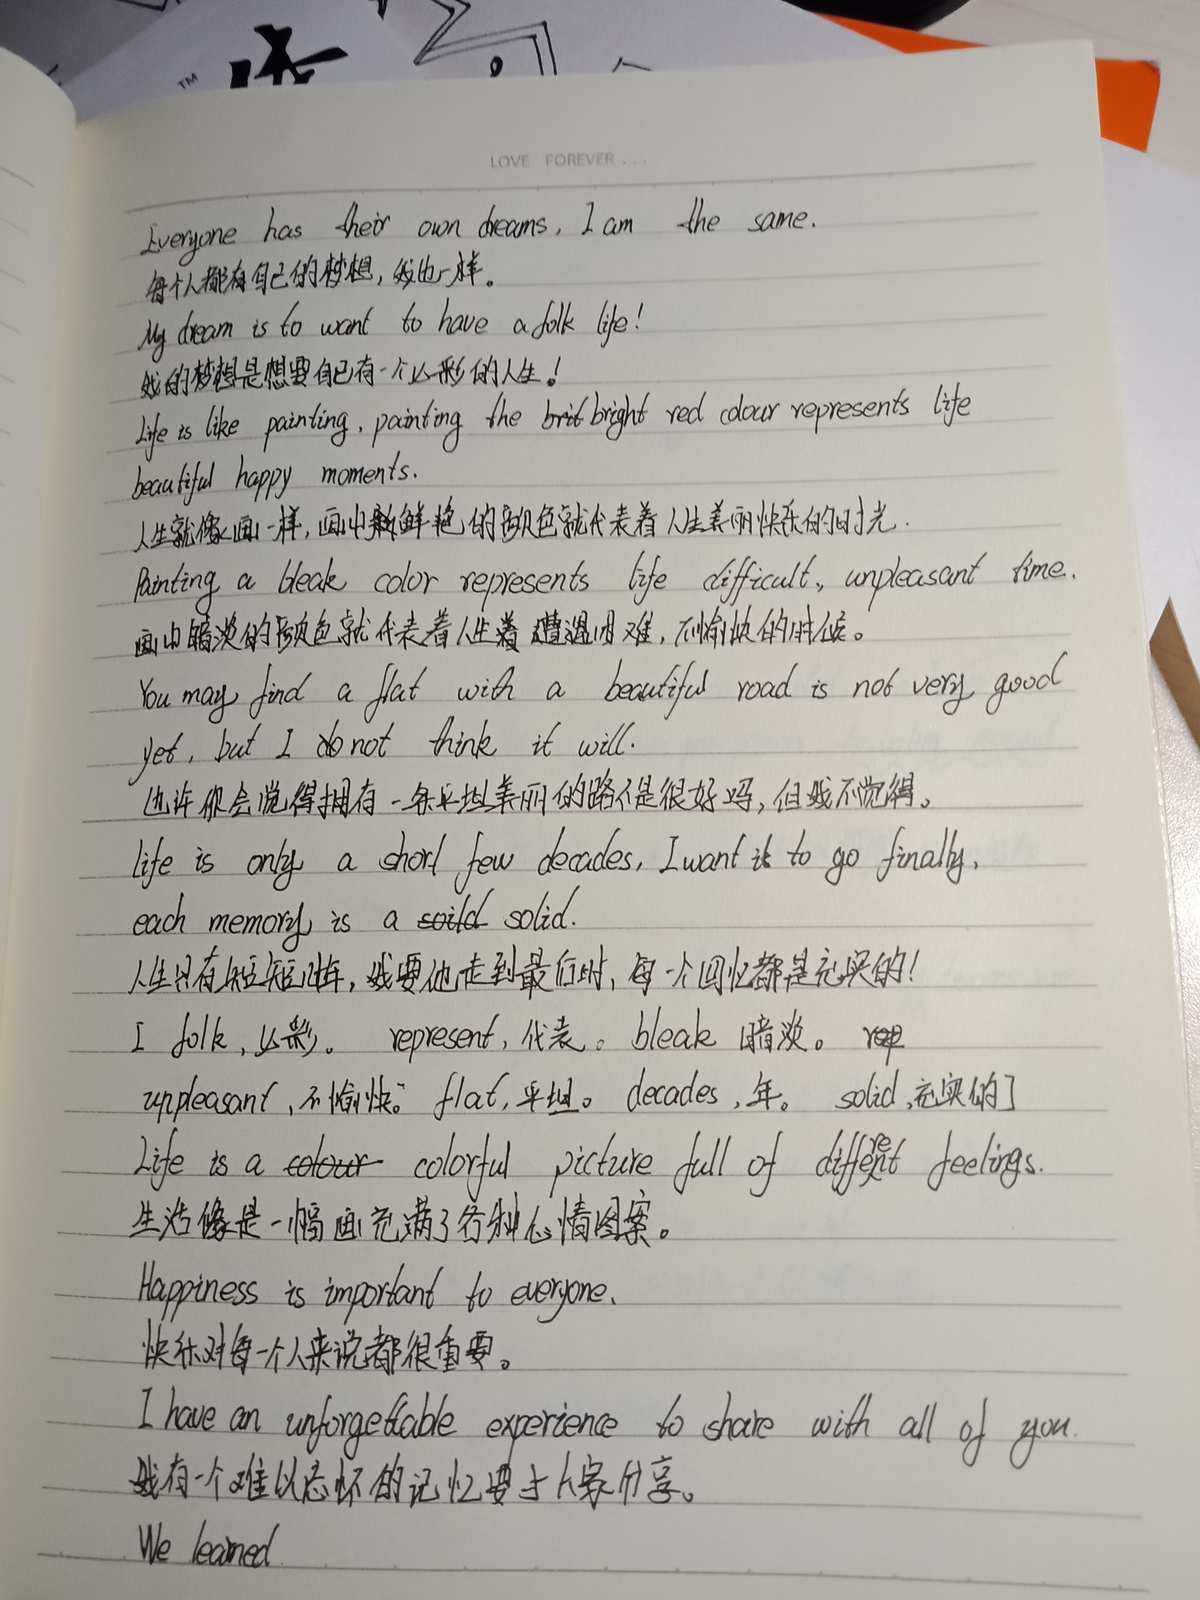 TM
LOVE FOREVER...
Everyone has their own dreams, I am the same.
每个人都有自己的梦想，我也一样。
My dream is to want to have a folk life!
我的梦想是想要自己有一个幺彩的人生！
Life is like painting, painting the brit bright red colour represents life
beautiful happy moments.
人生就像画一样，画中鲜艳的颜色就代表着人生美丽快乐的时光.
Painting a bleak color represents life difficult, unpleasant time.
画中暗淡的颜色就代表着人生着遭遇困难，不愉快的时候。
You may find a flat with a beautiful road is not very good
yet, but I do not think it will.
也许你会觉得拥有一条平坦美丽的路不是很好吗，但我不觉得。
life is only a short few decades, I want it to go finally,
each memory is a soild solid.
人生只有短短几年，我要他走到最后时，每一个回忆都是充实的！
I folk，幺彩。 represent，代表。bleak 暗淡。 rep
unpleasant，不愉快。 flat，平坦。 decades，年。 solid，充实的]
Life is a colour colorful picture full of different feelings.
生活像是一幅画充满了各种心情图案。
Happiness is important to everyone.
快乐对每一个人来说都很重要。
I have an unforgettable experience to share with all of you.
我有一个难以忘怀的记忆要于大家分享。
We learned